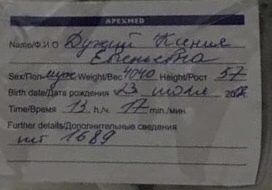 APEXMED
Name/Ф.И.О Дужий Ксения
Евгеньевна
Sex/Пол муж Weight/Вес 4040 Height/Рост 57
Birth date/Дата рождения 23 июля
Time/Время 13 h./ч. 17 min./мин.
Further details/Дополнительные сведения
1689